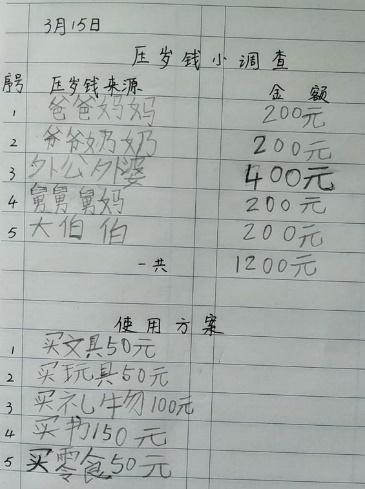 3月15日
压岁钱小调查
序号 压岁钱来源 金额
1 爸爸妈妈 200元
2 爷爷奶奶 200元
3 外公外婆 400元
4 舅舅舅妈 200元
5 大伯伯 200元
一共 1200元
使用方案
1 买文具50元
2 买玩具50元
3 买礼物100元
4 买书150元
5 买零食50元